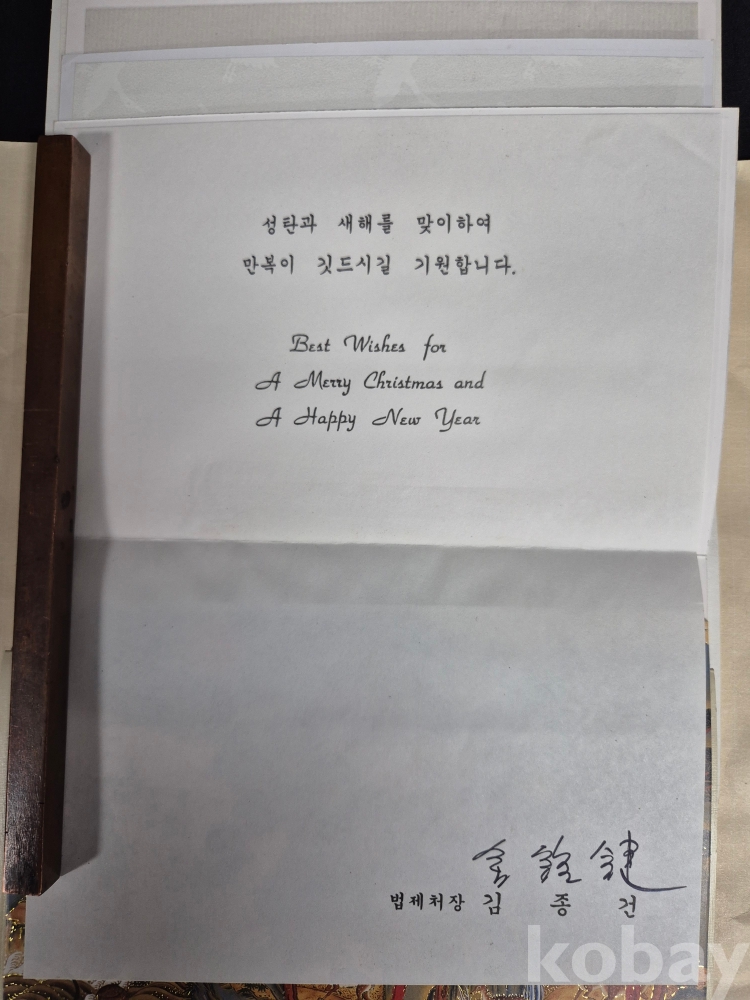 성탄과 새해를 맞이하여
만복이 깃드시길 기원합니다.
Best Wishes for
A Merry Christmas and
A Happy New Year
金
鍵
법제처장 김 종 건
kobay